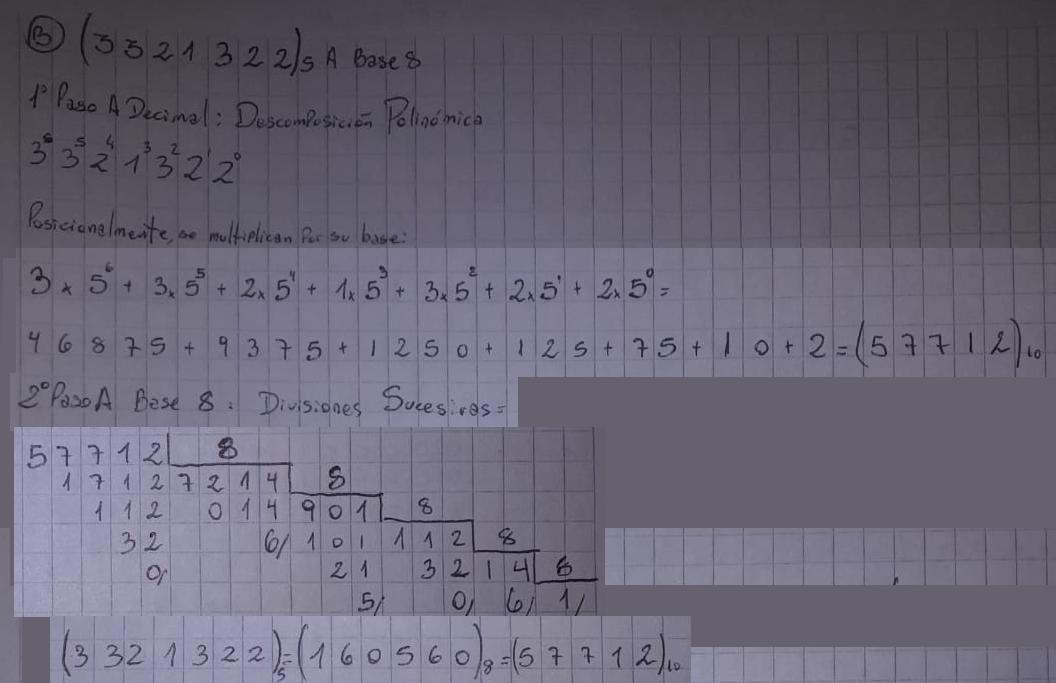 B) (3321322)5 A Base 8
1º Paso A Decimal: Descomposición Polinómica
3⁶ 3⁵ 2⁴ 1³ 3² 2¹ 2⁰
Posicionalmente, se multiplican por su base:
3 x 5⁶ + 3x5⁵ + 2x5⁴ + 1x5³ + 3x5² + 2x5¹ + 2x5⁰ =
46875 + 9375 + 1250 + 125 + 75 + 10 + 2 = (57712)10
2º Paso A Base 8: Divisiones Sucesivas =
57712 8
1712 7214 8
112 014 901 8
32 6/ 101 112 8
0/ 21 32 14 8
5/ 0/ 6/ 1/
(3321322)5 = (160560)8 = (57712)10